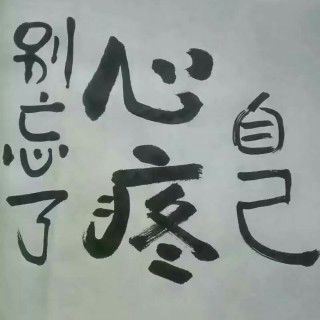 别忘了
心疼
自己